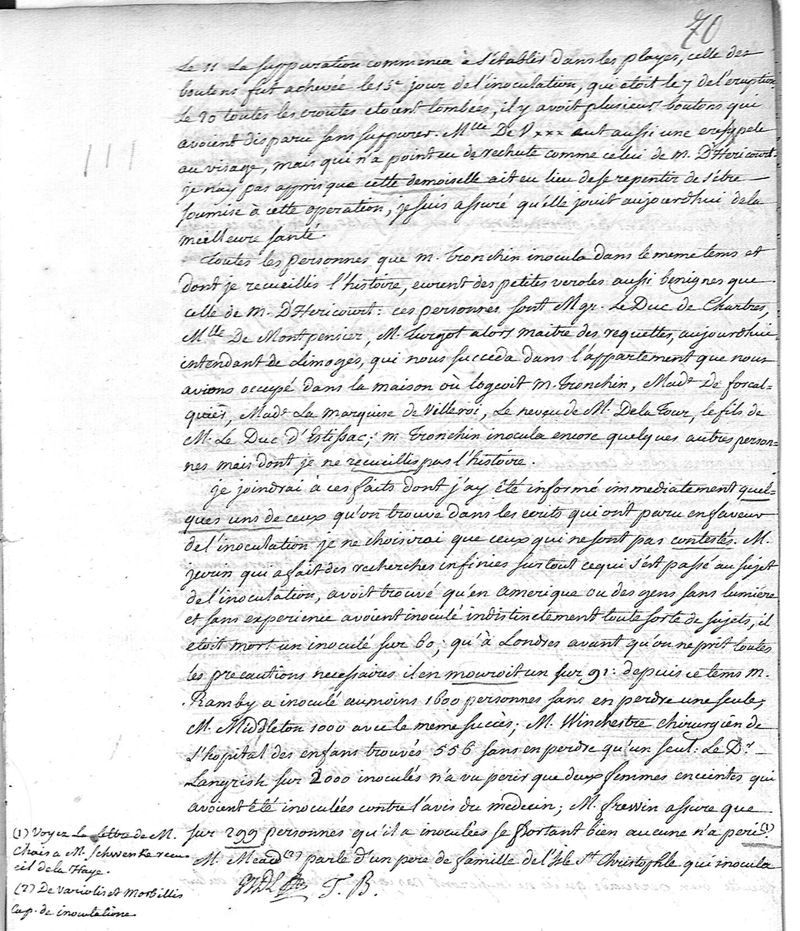 70
Le 11 La suppuration commença a s'etablir dans les playes, celle des
boutons fut achevée le 15e jour de l'inoculation, qui etoit le 7 de l'eruption
Le 20 toutes les croutes etoient tombées, il y avoit plusieurs boutons que
avoient disparu sans suppurer. Mlle De Vxxx eut aussi une erisypele
au visage, mais qui n'a point eu de rechute comme celui de m. D'Hericourt.
je n'ay pas appris que cette demoiselle ait eu lieu de se repentir de s'etre
soumise à cette operation, je suis assuré qu'elle jouit aujourd'hui de la
meilleure santé.
Toutes les personnes que m. Tronchin inocula dans le meme tems et
dont je recueillis l'histoire, eurent des petites veroles aussi benignes que
celle de m. D'Hericourt: ces personnes sont Mgr. Le Duc de Chartres,
Mlle De Montpensier, M. Turgot alors maitre des requettes, aujourd'hui
intendant de Limoges, qui nous succeda dans l'appartement que nous
avions occupé dans la maison où logeoit m. Tronchin, Made De forcal-
quiés, Made La marquise de Villeroi, Le neveu de M. De la Tour, le fils de
M. Le Duc d'Estissac; m Tronchin inocula encore quelques autres person-
nes mais dont je ne recueillis pas l'histoire.
je joindrai à ces faits dont j'ay été informé immediatement quel-
ques uns de ceux qu'on trouve dans les ecrits qui ont paru en faveur
de l'inoculation je ne choisirai que ceux qui ne sont pas contestés. M.
jurin qui a fait des recherches infinies sur tout ce qui s'est passé au sujet
de l'inoculation, avoit trouvé qu'en amerique ou des gens sans lumiere
et sans experience avoient inoculé indistinctement toute sorte de sujets, il
etoit mort un inoculé sur 60; qu'à Londres avant qu'on ne prit toutes
les precautions necessaires il en mouroit un sur 91: depuis ce tems m.
Ramby a inoculé au moins 1600 personnes sans en perdre une seule,
M. Middleton 1000 avec le meme succes; M. Winchestre chirurgien de
l'hopital des enfans trouvés 556 sans en perdre qu'un seul: Le Dr.
Langrish sur 2000 inoculés n'a vu perir que deux femmes enceintes qui
avoient été inoculées contre l'avis du medecin; M. frewin assure que
sur 299 personnes qu'il a inoculées se portant bien aucune n'a peri(1)
M. Mead(2) parle d'un pere de famille de l'isle St Christophle qui inocula
T. B.
(1) Voyez La lettre de M.
Chais a M. Schwenke recu-
eil de la Haye.
(2) De Variolis et Morbillis
Cap. de inoculatione.